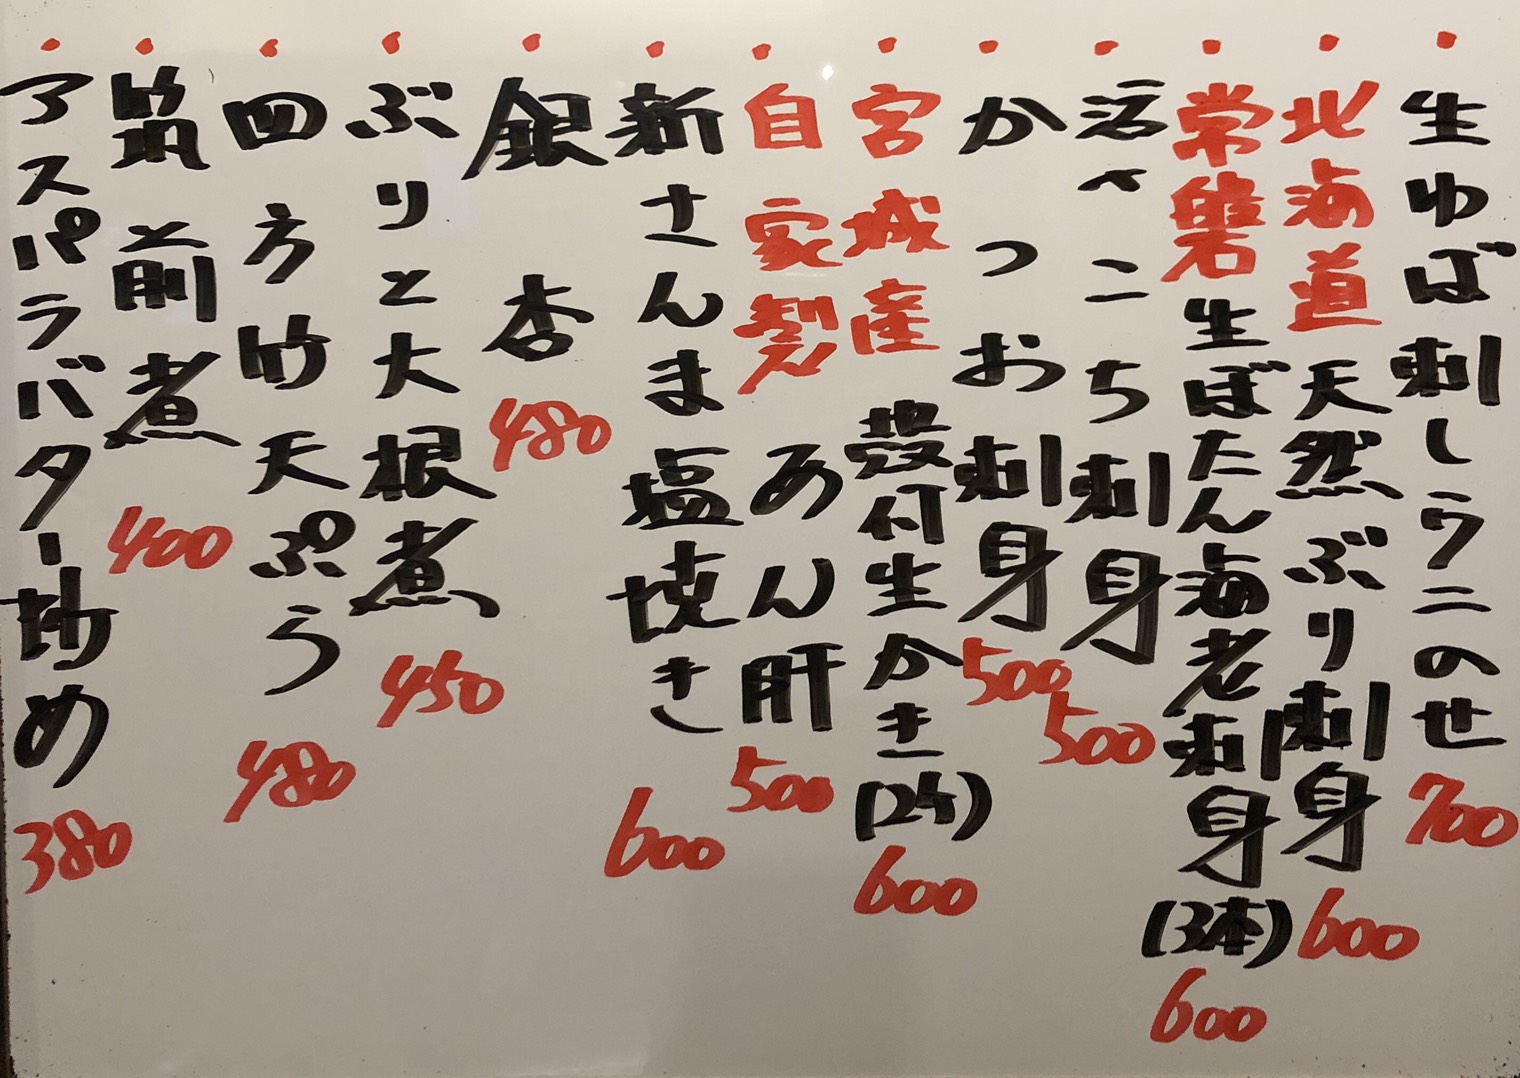 ・生ゆば刺しウニのせ 700
・北海道天然ぶり刺身 600
・常磐生ぼたん海老刺身(3本) 600
・活〆こち刺身 500
・かつお刺身 500
・宮城産 殻付生かき(2ケ) 600
・自家製 あん肝 500
・新さんま塩焼き 600
・銀杏 480
・ぶりと大根煮 450
・四方竹天ぷら 480
・筑前煮 400
・アスパラバター炒め 380